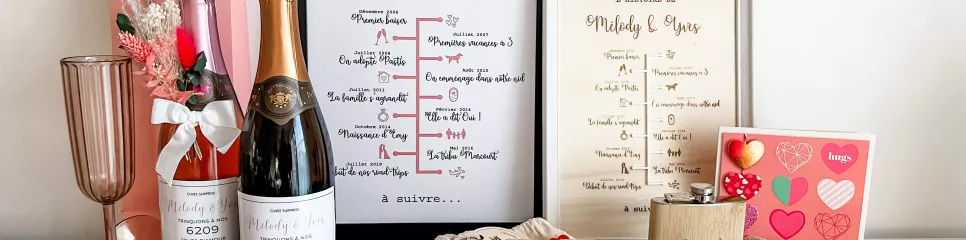 CUVÉE SURPRISE
Mélody & Yves
TRINQUONS À NOS
6209
CUVÉE SURPRISE
Mélody & Yves
TRINQUONS À NOS
Décembre 2006
Premier baiser
Juillet 2007
Premières vacances à 3
Juillet 2008
On adopte Pastis
Août 2010
On emménage dans notre nid
Juillet 2011
La famille s'agrandit
Février 2014
Elle a dit Oui !
Octobre 2014
Naissance d'Emy
Mai 2016
La tribu Marcourt
Juillet 2019
Début de nos road-trips
à suivre...
L'HISTOIRE DE
Mélody & Yves
Premier baiser
Premières vacances à 3
On adopte Pastis
On emménage dans notre nid
La famille s'agrandit
Elle a dit Oui !
Naissance d'Emy
La tribu Marcourt
Début de nos road-trips
à suiv
hugs